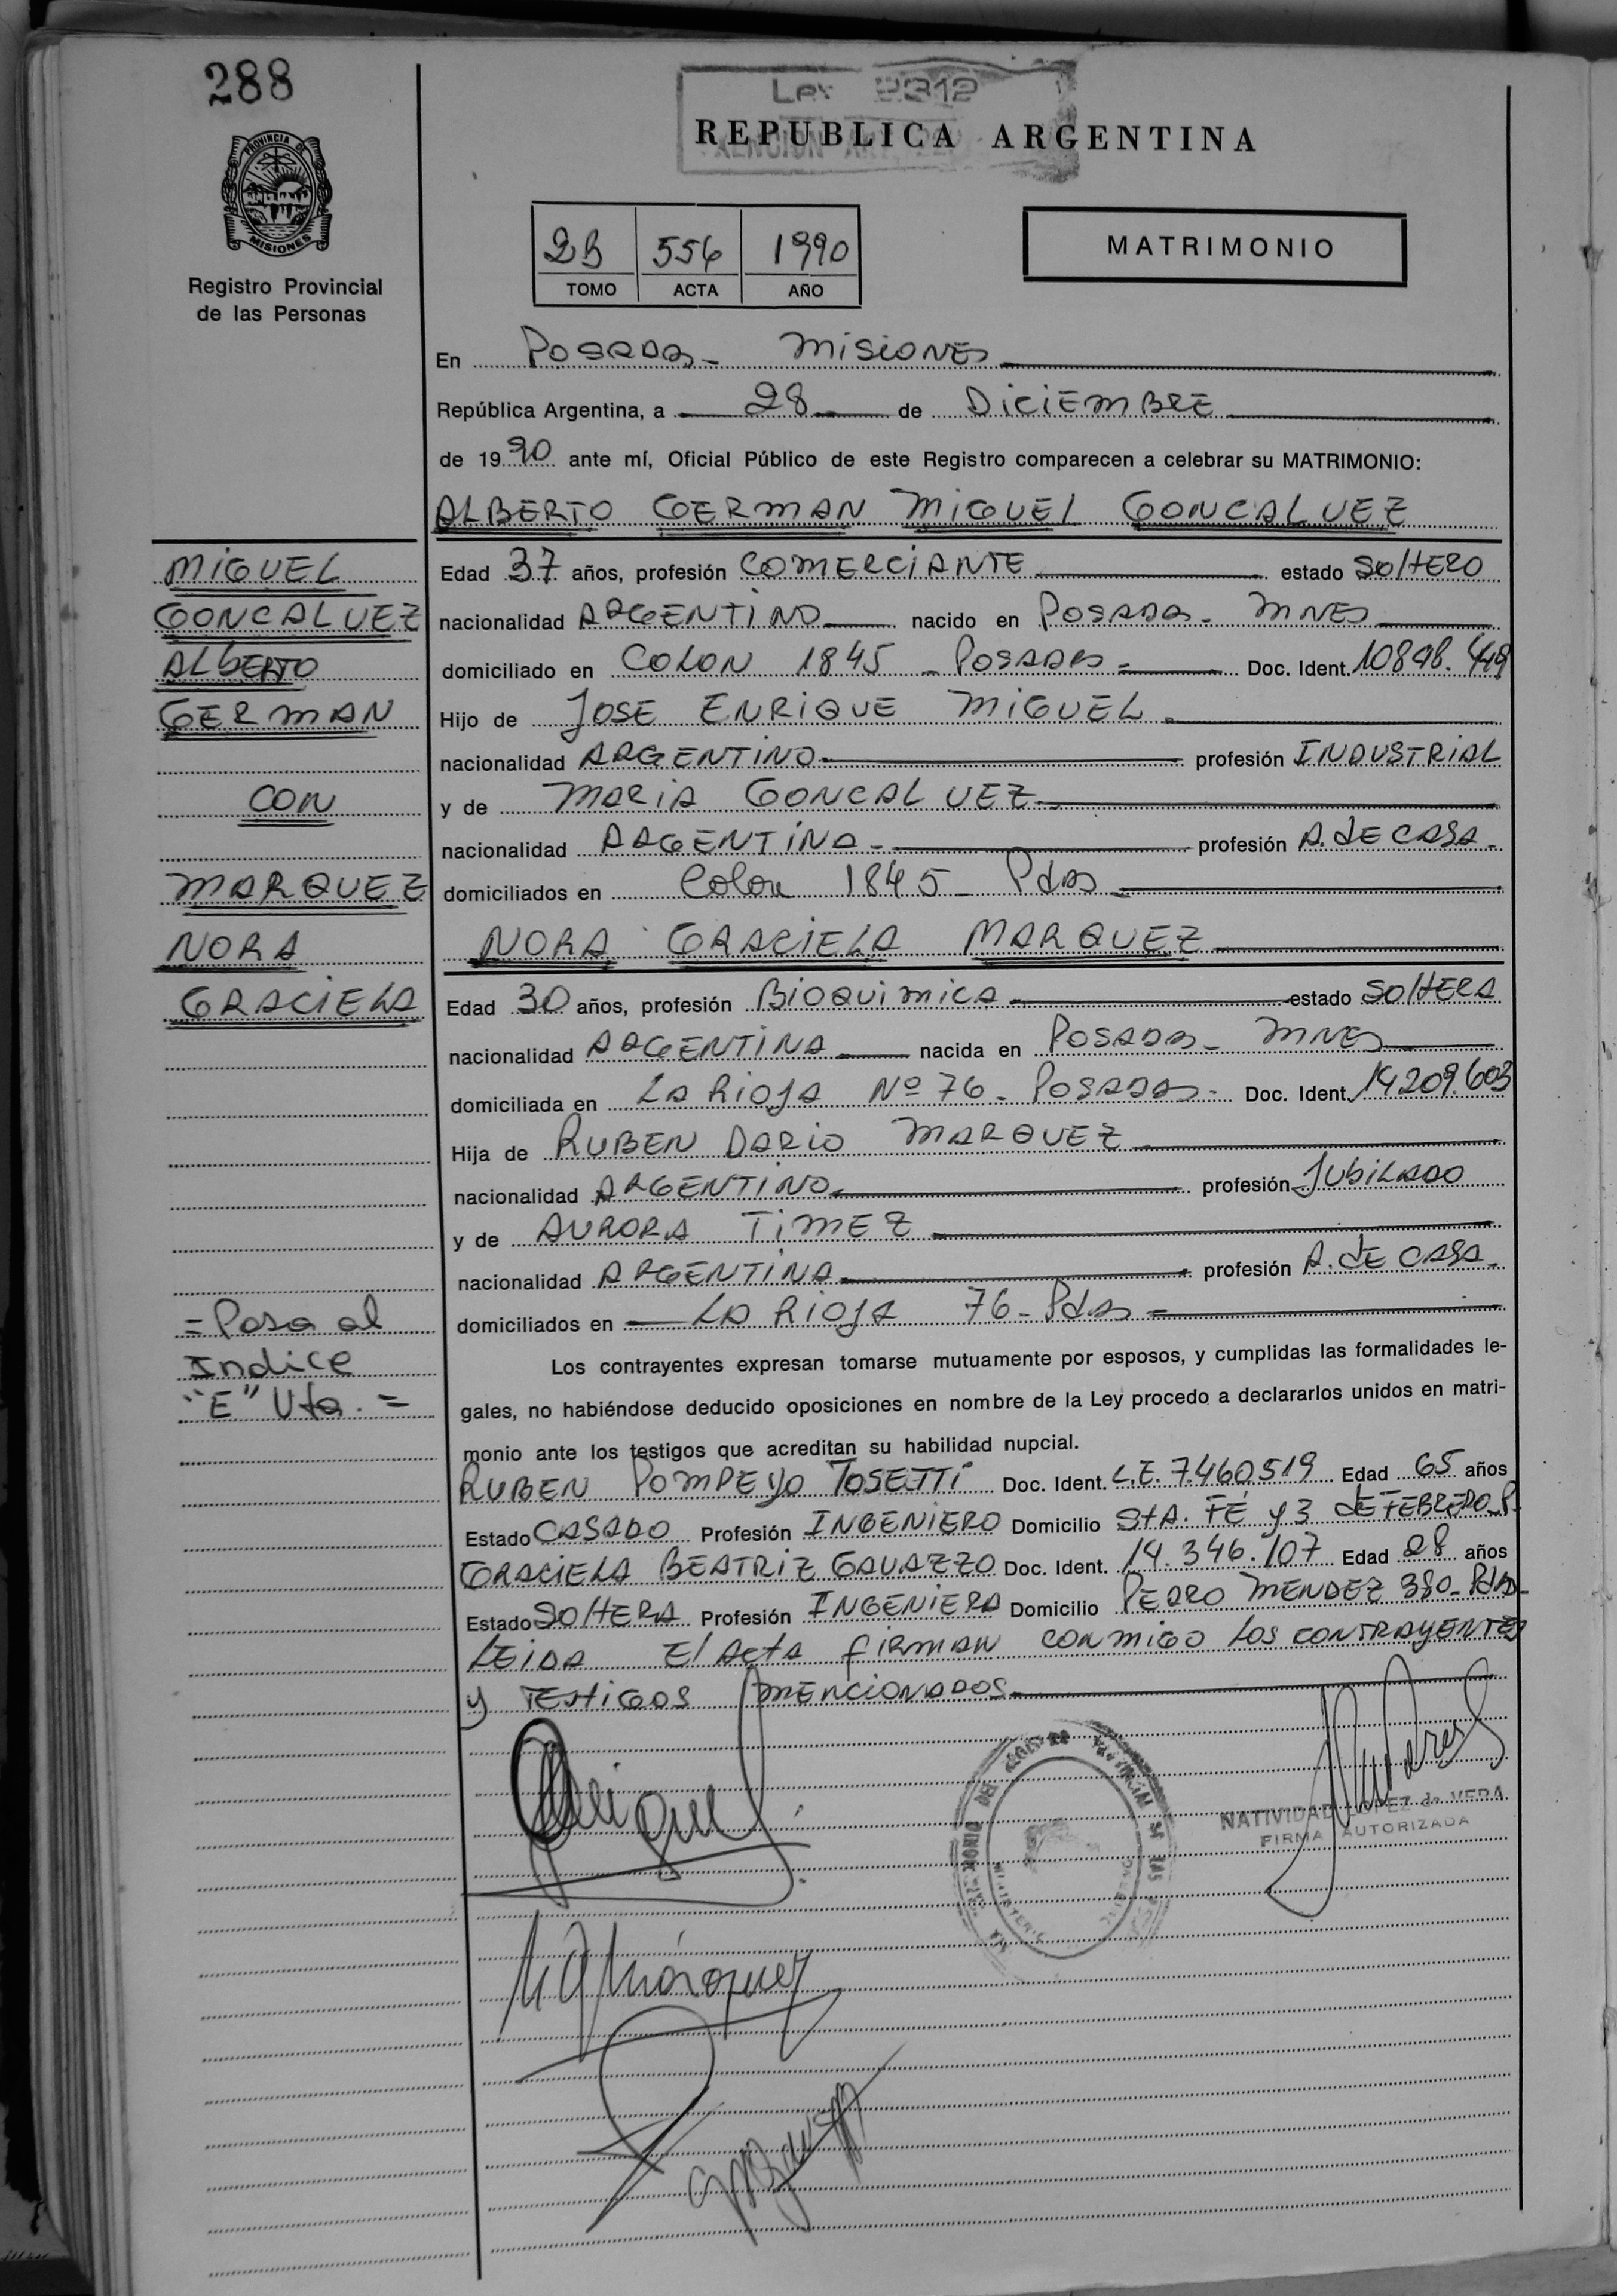 288
Ley 2312
REPUBLICA ARGENTINA
PROVINCIA DE
MISIONES
Registro Provincial
de las Personas
2B 556 1990
TOMO ACTA AÑO
MATRIMONIO
En POSADAS - MISIONES
República Argentina, a 28 de DICIEMBRE
de 1990 ante mí, Oficial Público de este Registro comparecen a celebrar su MATRIMONIO:
ALBERTO GERMAN MIGUEL GONCALVEZ
MIGUEL
GONCALVEZ
ALBERTO
GERMAN
CON
MARQUEZ
NORA
GRACIELA
Edad 37 años, profesión COMERCIANTE estado SOLTERO
nacionalidad ARGENTINO nacido en POSADAS - MNES
domiciliado en COLON 1845 - POSADAS = Doc. Ident. 10898.449
Hijo de JOSE ENRIQUE MIGUEL
nacionalidad ARGENTINO profesión INDUSTRIAL
y de MARIA GONCALVEZ
nacionalidad ARGENTINA - profesión A. DE CASA -
domiciliados en Colon 1845 - Pdas
NORA GRACIELA MARQUEZ
Edad 30 años, profesión BIOQUIMICA estado SOLTERA
nacionalidad ARGENTINA nacida en POSADAS - MNES
domiciliada en LA RIOJA Nº 76 - POSADAS - Doc. Ident. 14209.603
Hija de RUBEN DARIO MARQUEZ
nacionalidad ARGENTINO profesión JUBILADO
y de AURORA TIMEZ
nacionalidad ARGENTINA profesión A. DE CASA -
domiciliados en LA RIOJA 76 - Pdas =
= Pasa al
Indice
"E" Vta. =
Los contrayentes expresan tomarse mutuamente por esposos, y cumplidas las formalidades le-
gales, no habiéndose deducido oposiciones en nombre de la Ley procedo a declararlos unidos en matri-
monio ante los testigos que acreditan su habilidad nupcial.
RUBEN POMPEYO TOSETTI Doc. Ident. L.E. 7.460.519 Edad 65 años
Estado CASADO Profesión INGENIERO Domicilio STA. FE y 3 DE FEBRERO - P.
GRACIELA BEATRIZ GAVAZZO Doc. Ident. 14.346.107 Edad 28 años
Estado SOLTERA Profesión INGENIERA Domicilio PEDRO MENDEZ 380 - Pdas -
LEIDA El ACTA FIRMAN CONMIGO LOS CONTRAYENTES
y TESTIGOS MENCIONADOS
Miguel
NATIVIDAD LOPEZ de VERA
FIRMA AUTORIZADA
NGMárquez